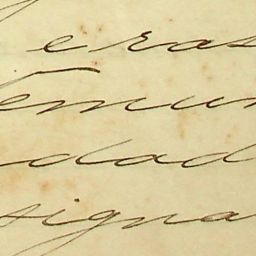 e ras
emun
dad
signa